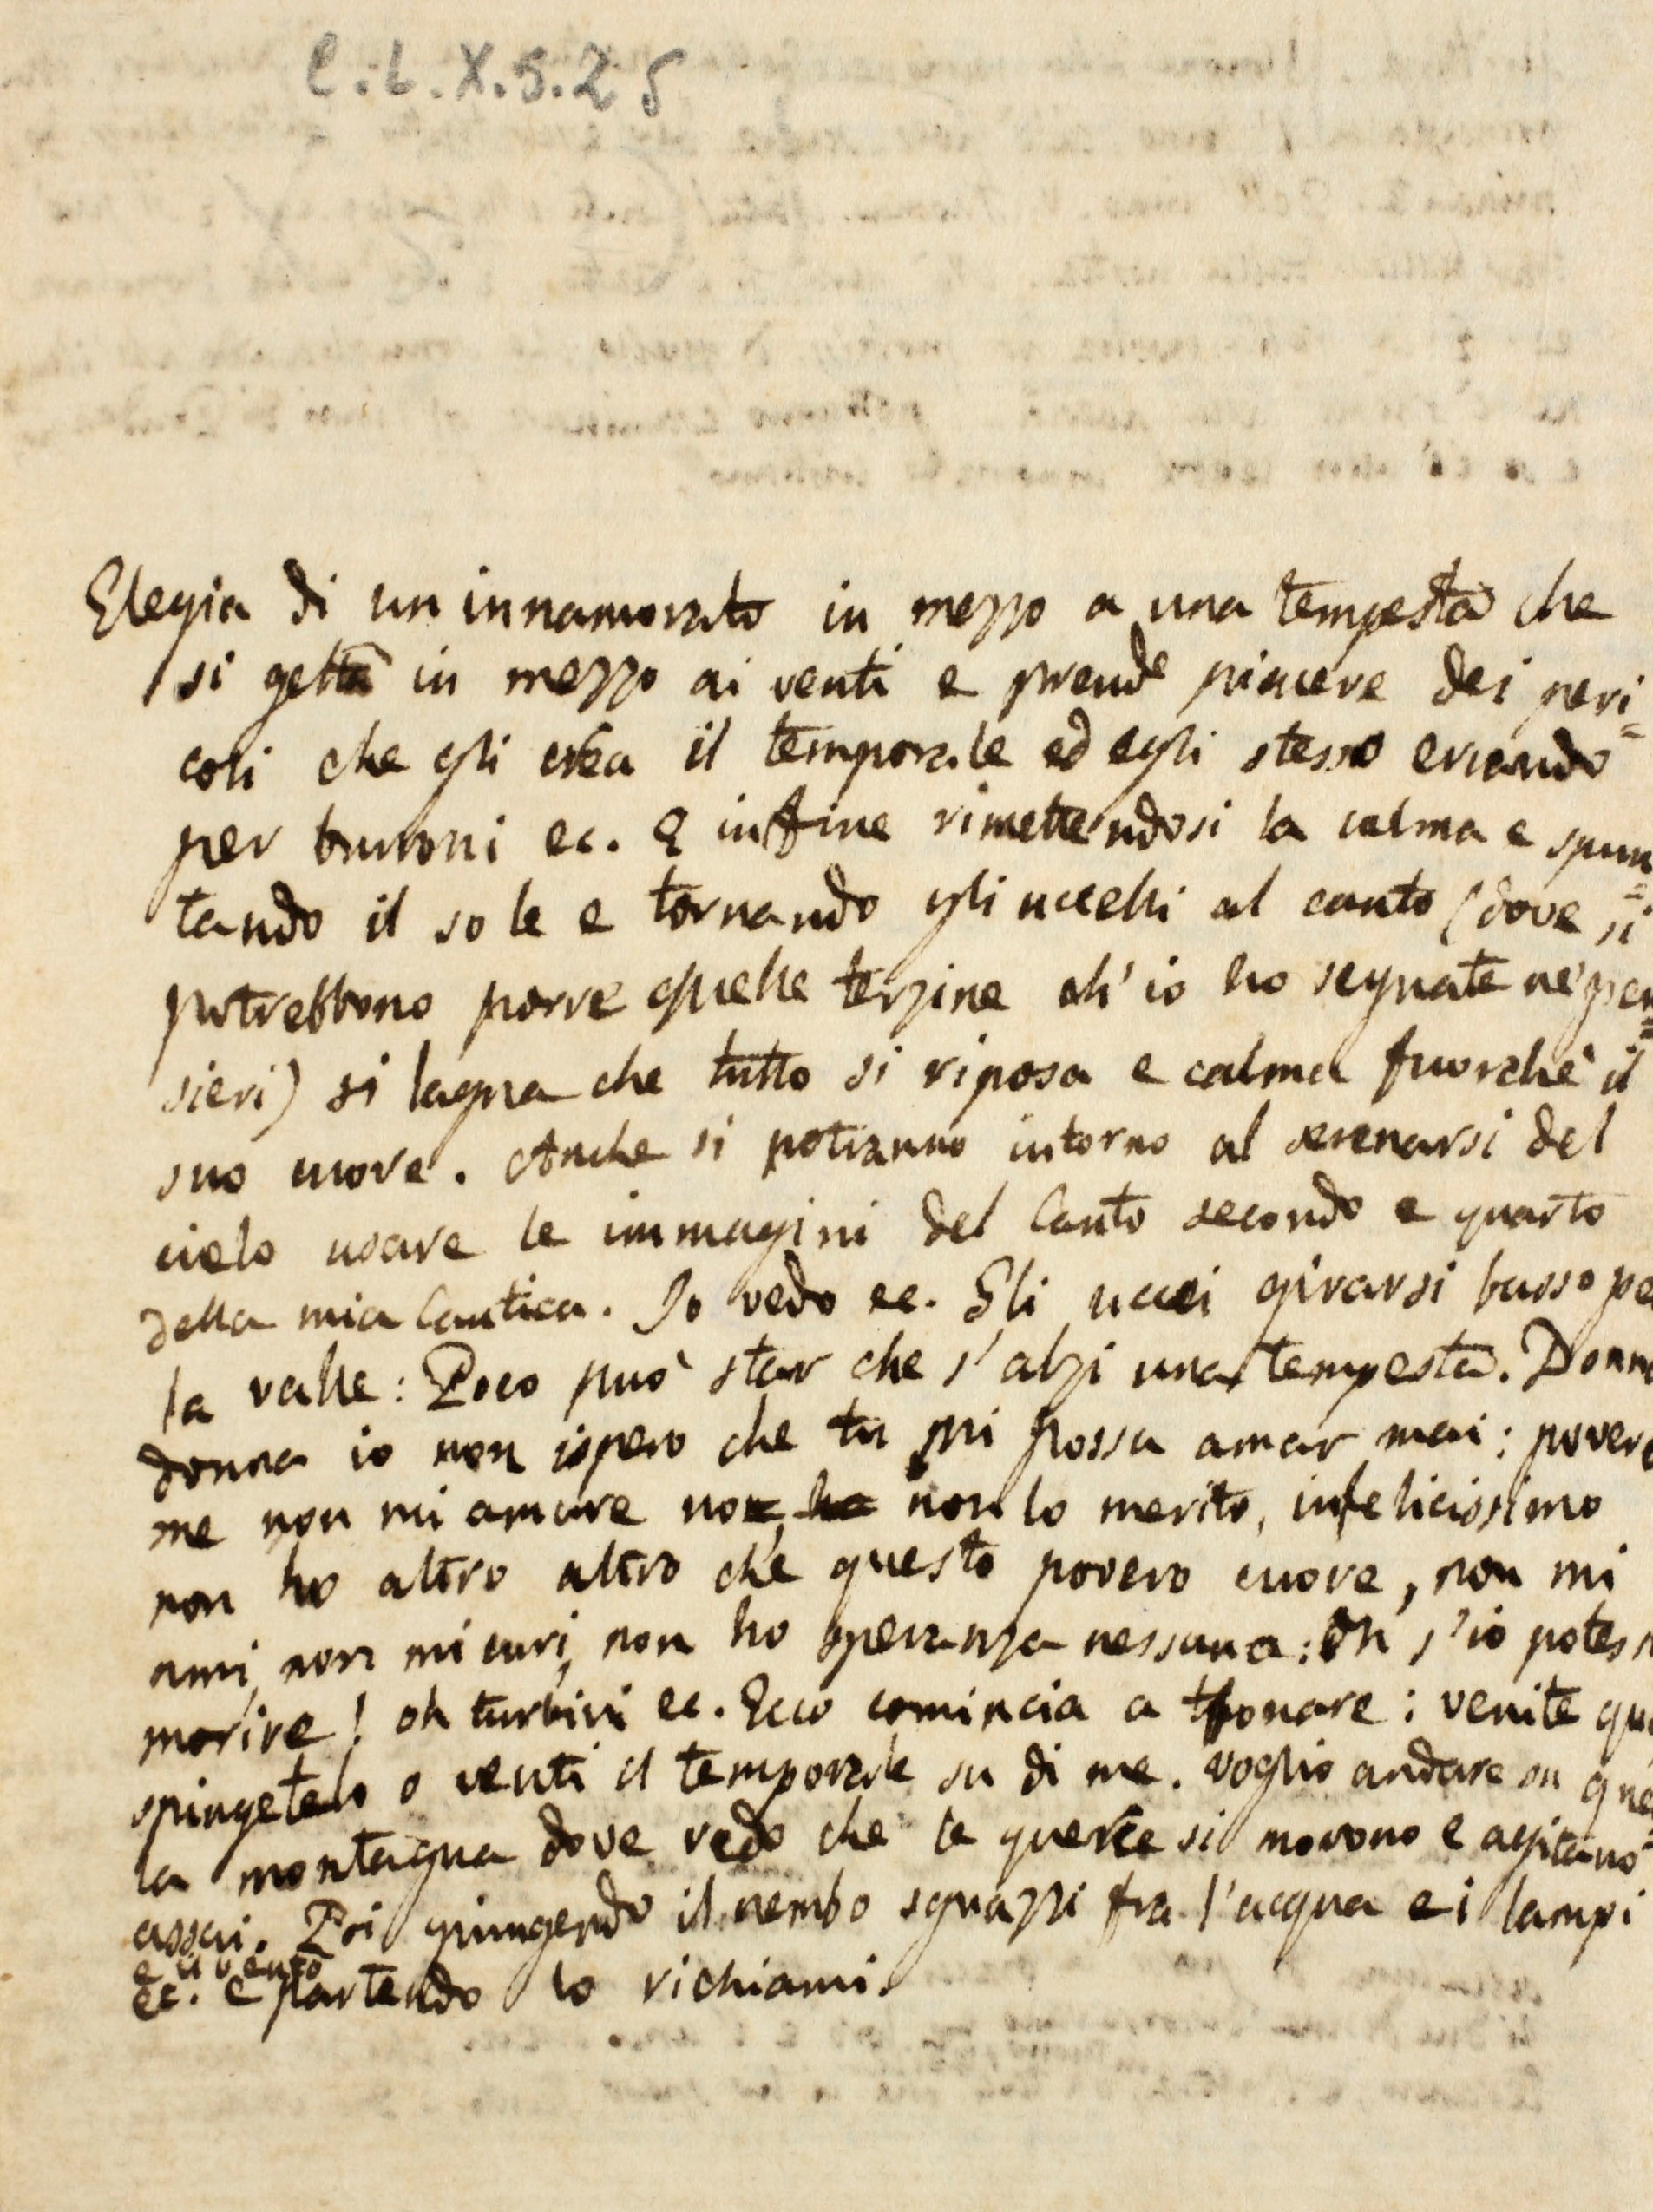 C.L.X.5.25
Elegia di un innamorato in mezzo a una tempesta che
si getta in mezzo ai venti e prende piacere dei peri=
coli che gli crea il temporale ed egli stesso errando
per burroni ec. E infine rimettendosi la calma e spun=
tando il sole e tornando gli uccelli al canto (dove si
potrebbono porre quelle terzine ch'io ho segnate ne' pen=
sieri) si lagna che tutto si riposa e calma fuorchè il
suo cuore. Anche si potranno intorno al serenarsi del
cielo usare le immagini del Canto secondo e quarto
della mia Cantica. Io vedo ec. Gli uccei girarsi basso pe
la valle: Poco può star che s'alzi una tempesta. Donna
donna io non ispero che tu mi possa amar mai: povero
me non mi amare no, non lo merito, infelicissimo
non ho altro altro che questo povero cuore, non mi
ami, non mi curi, non ho speranza nessuna: Oh s'io potessi
morire! oh turbini ec. Ecco comincia a tonare: venite qua
spingetelo o venti il temporale su di me. voglio andare su quel=
la montagna dove vedo che le querce si movono e agitano
assai. Poi giungendo il nembo sguazzi fra l'acqua e i lampi
e il vento
ec. e partendo lo richiami.